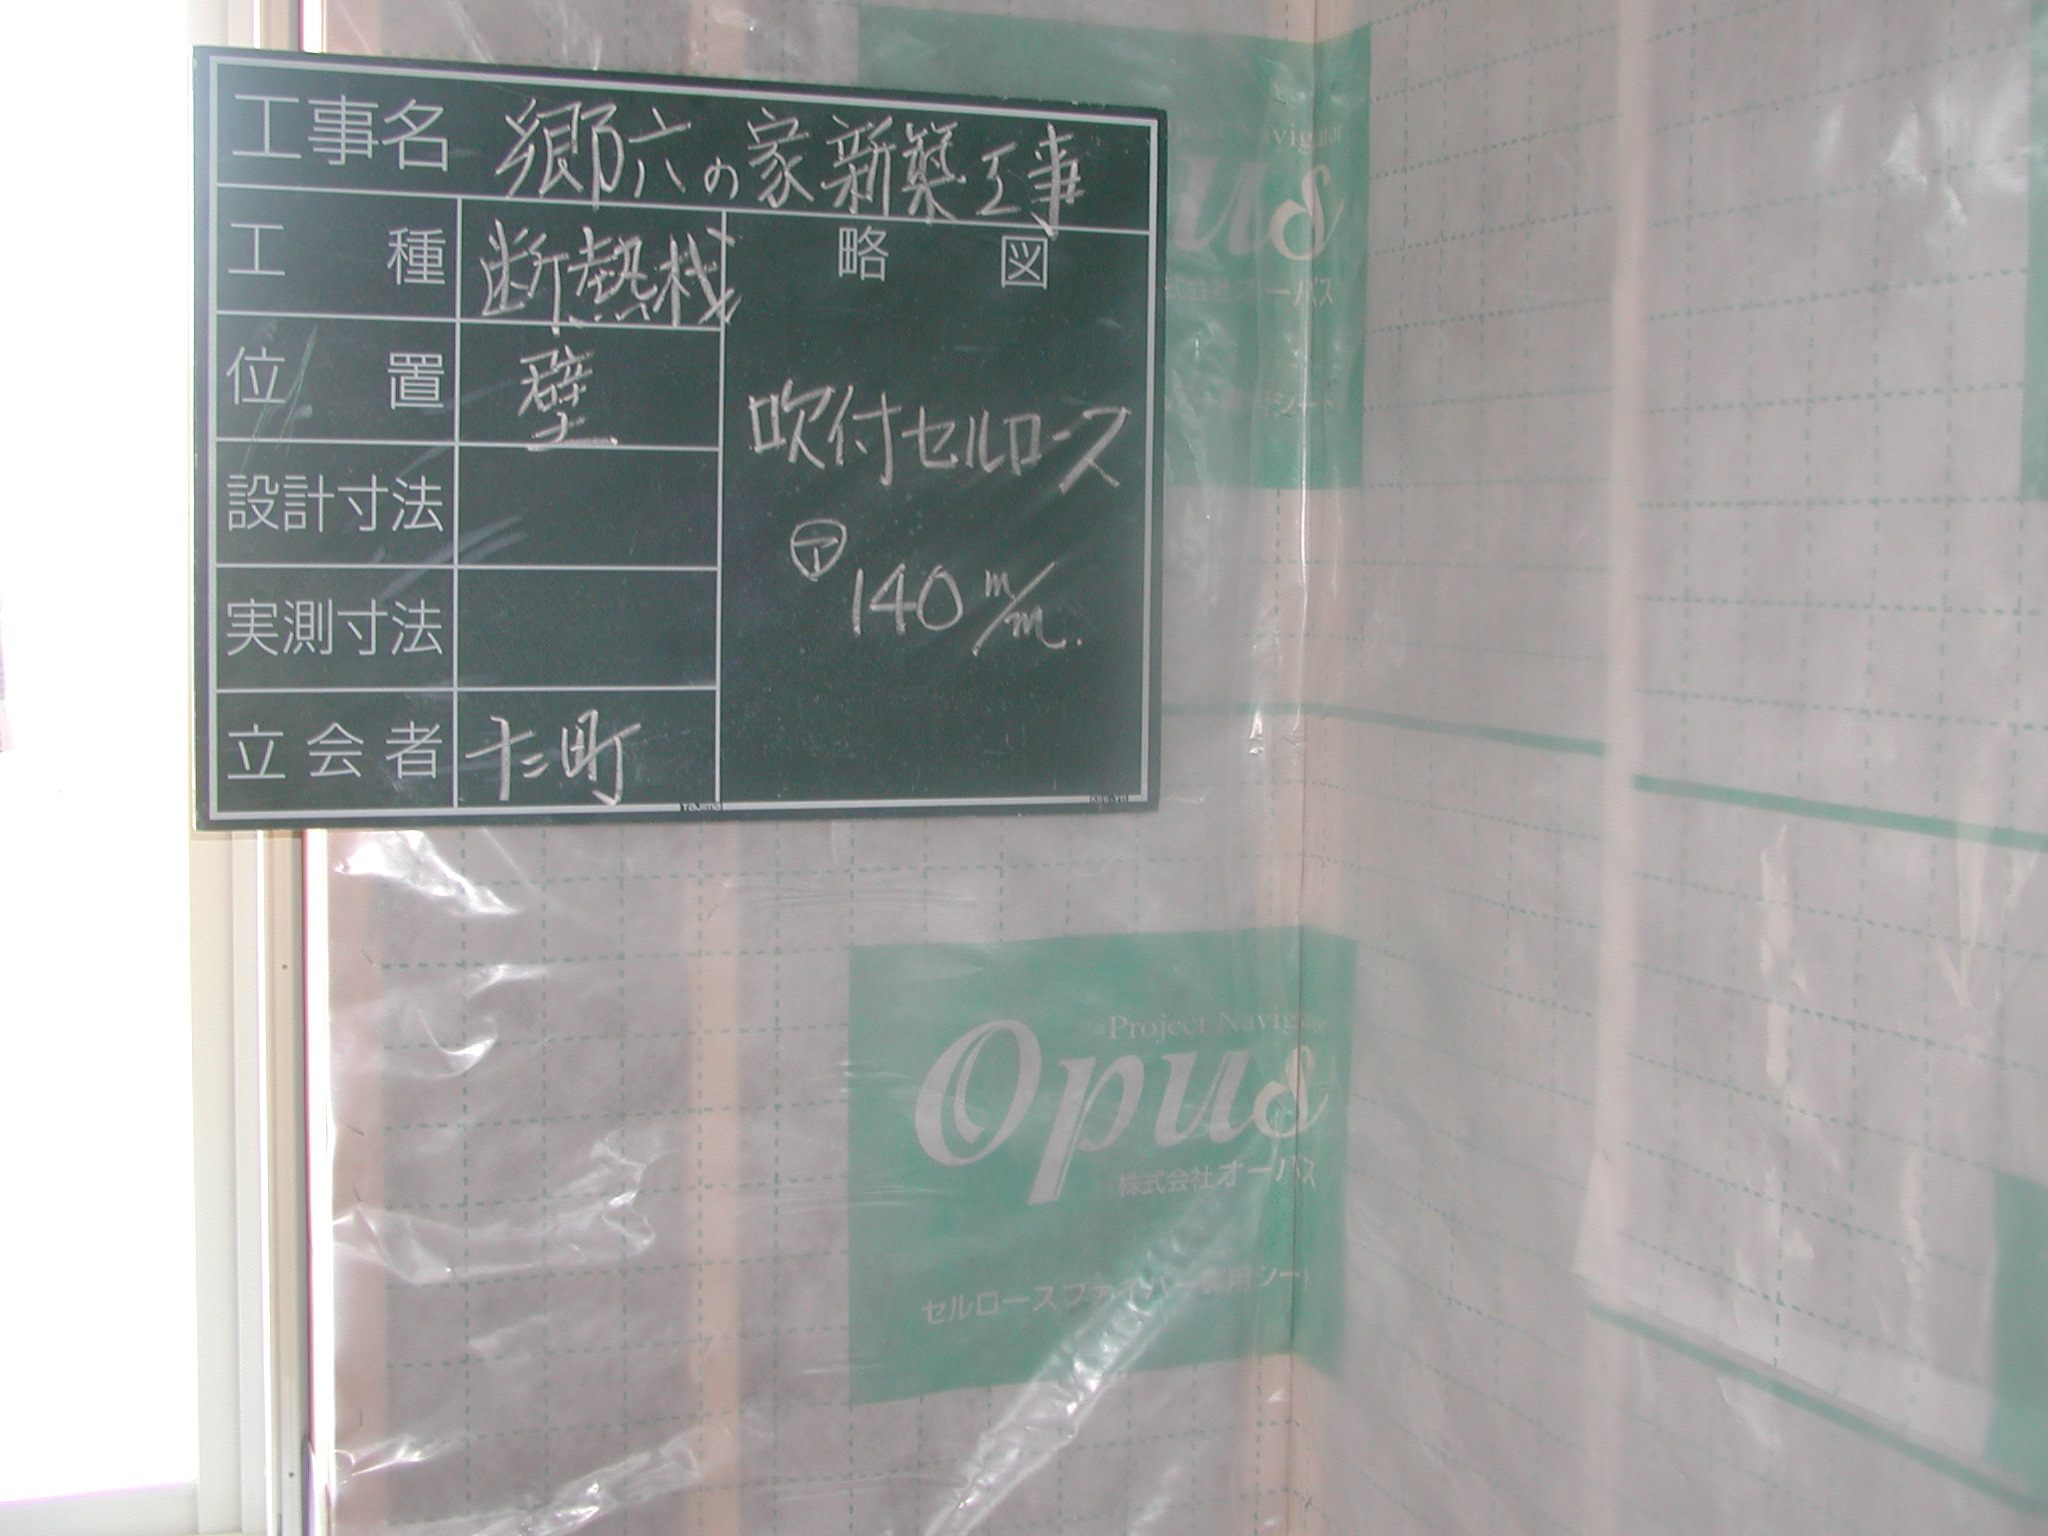 工事名 郷六の家新築工事
工種 断熱材
略図
位置 壁
吹付セルロース
設計寸法
ア 140 m/m.
実測寸法
立会者
町
Tajima
Opus
Project Navigator
株式会社オーパス
セルロースファイバー専用シート